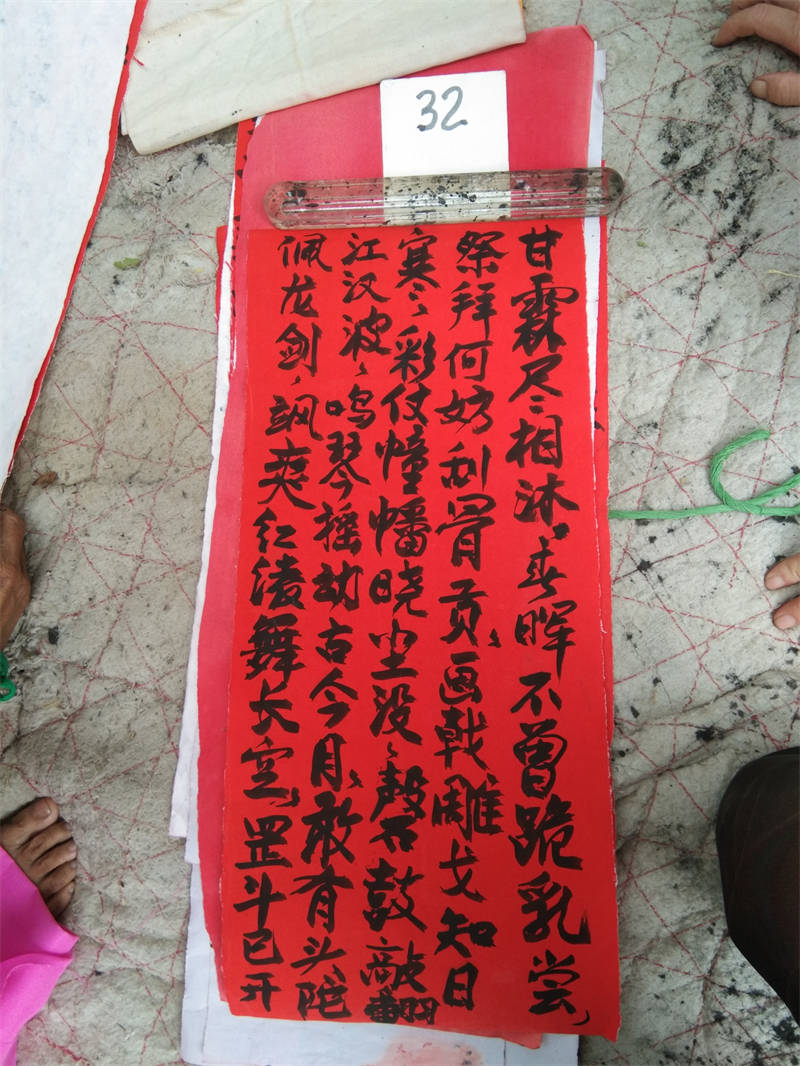 32
甘霖尽相沐，春晖不曾跪乳尝，
祭拜何妨刮骨贡，画戟雕戈知日
寒，彩仗幢幡晓尘没，磬石鼓敲翻
江汉波，鸣琴摇动古今月，敢有头陀
佩龙剑，飒爽红凌舞长空，罡斗已开